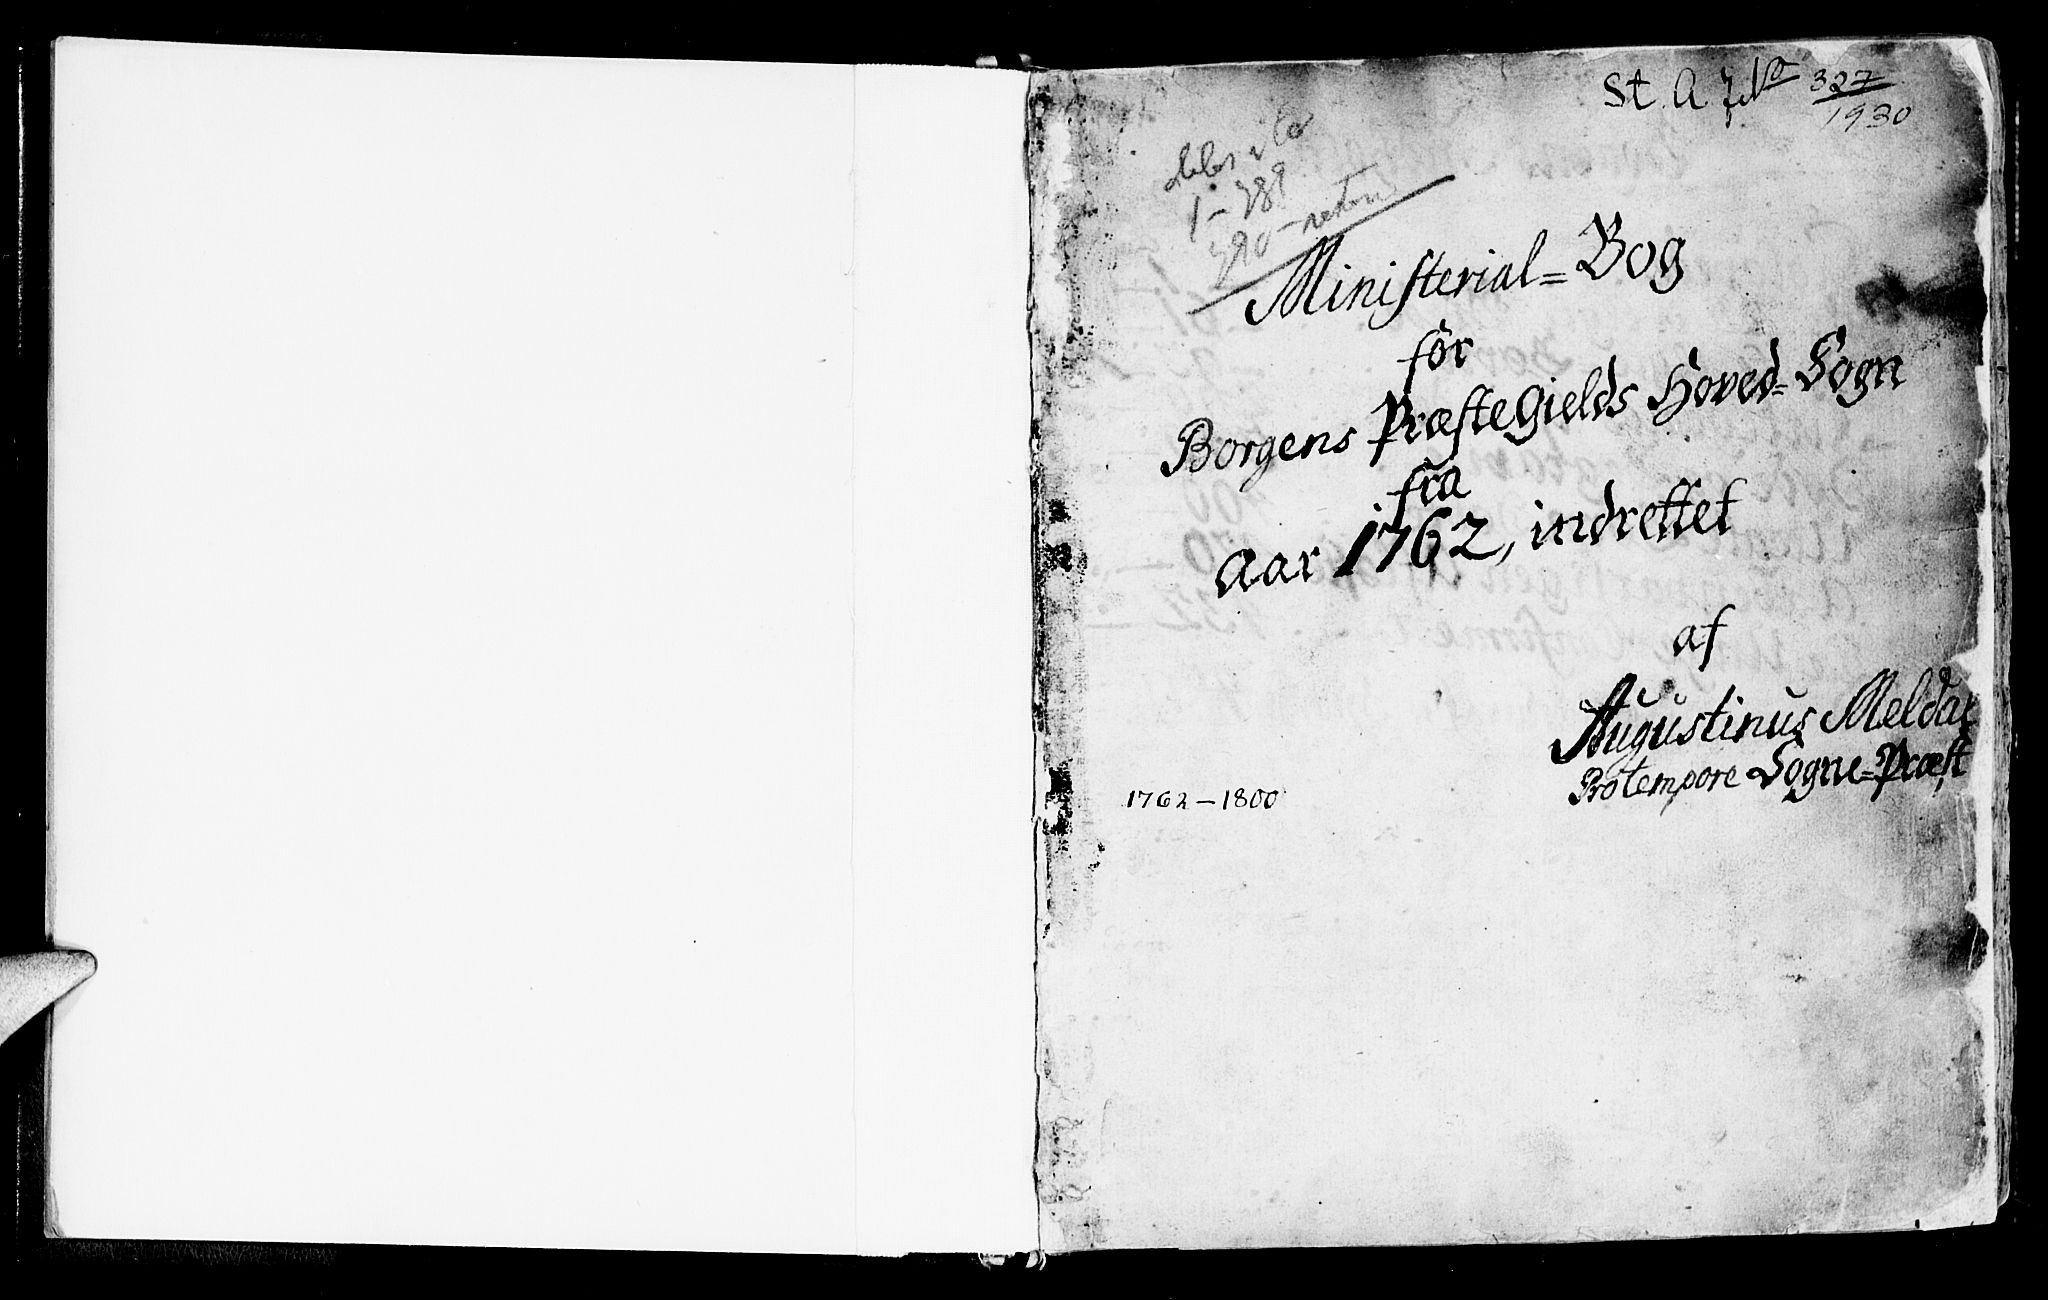 St. A. 327
1930
1 - 389
390 -
Ministerial=Bog
för
Borgens PræsteGields Hoved=Sogn
fra
Aar 1762, indrettet
af
Augustinus Meldal
Protempore Sogne=Præst
1762 - 1800